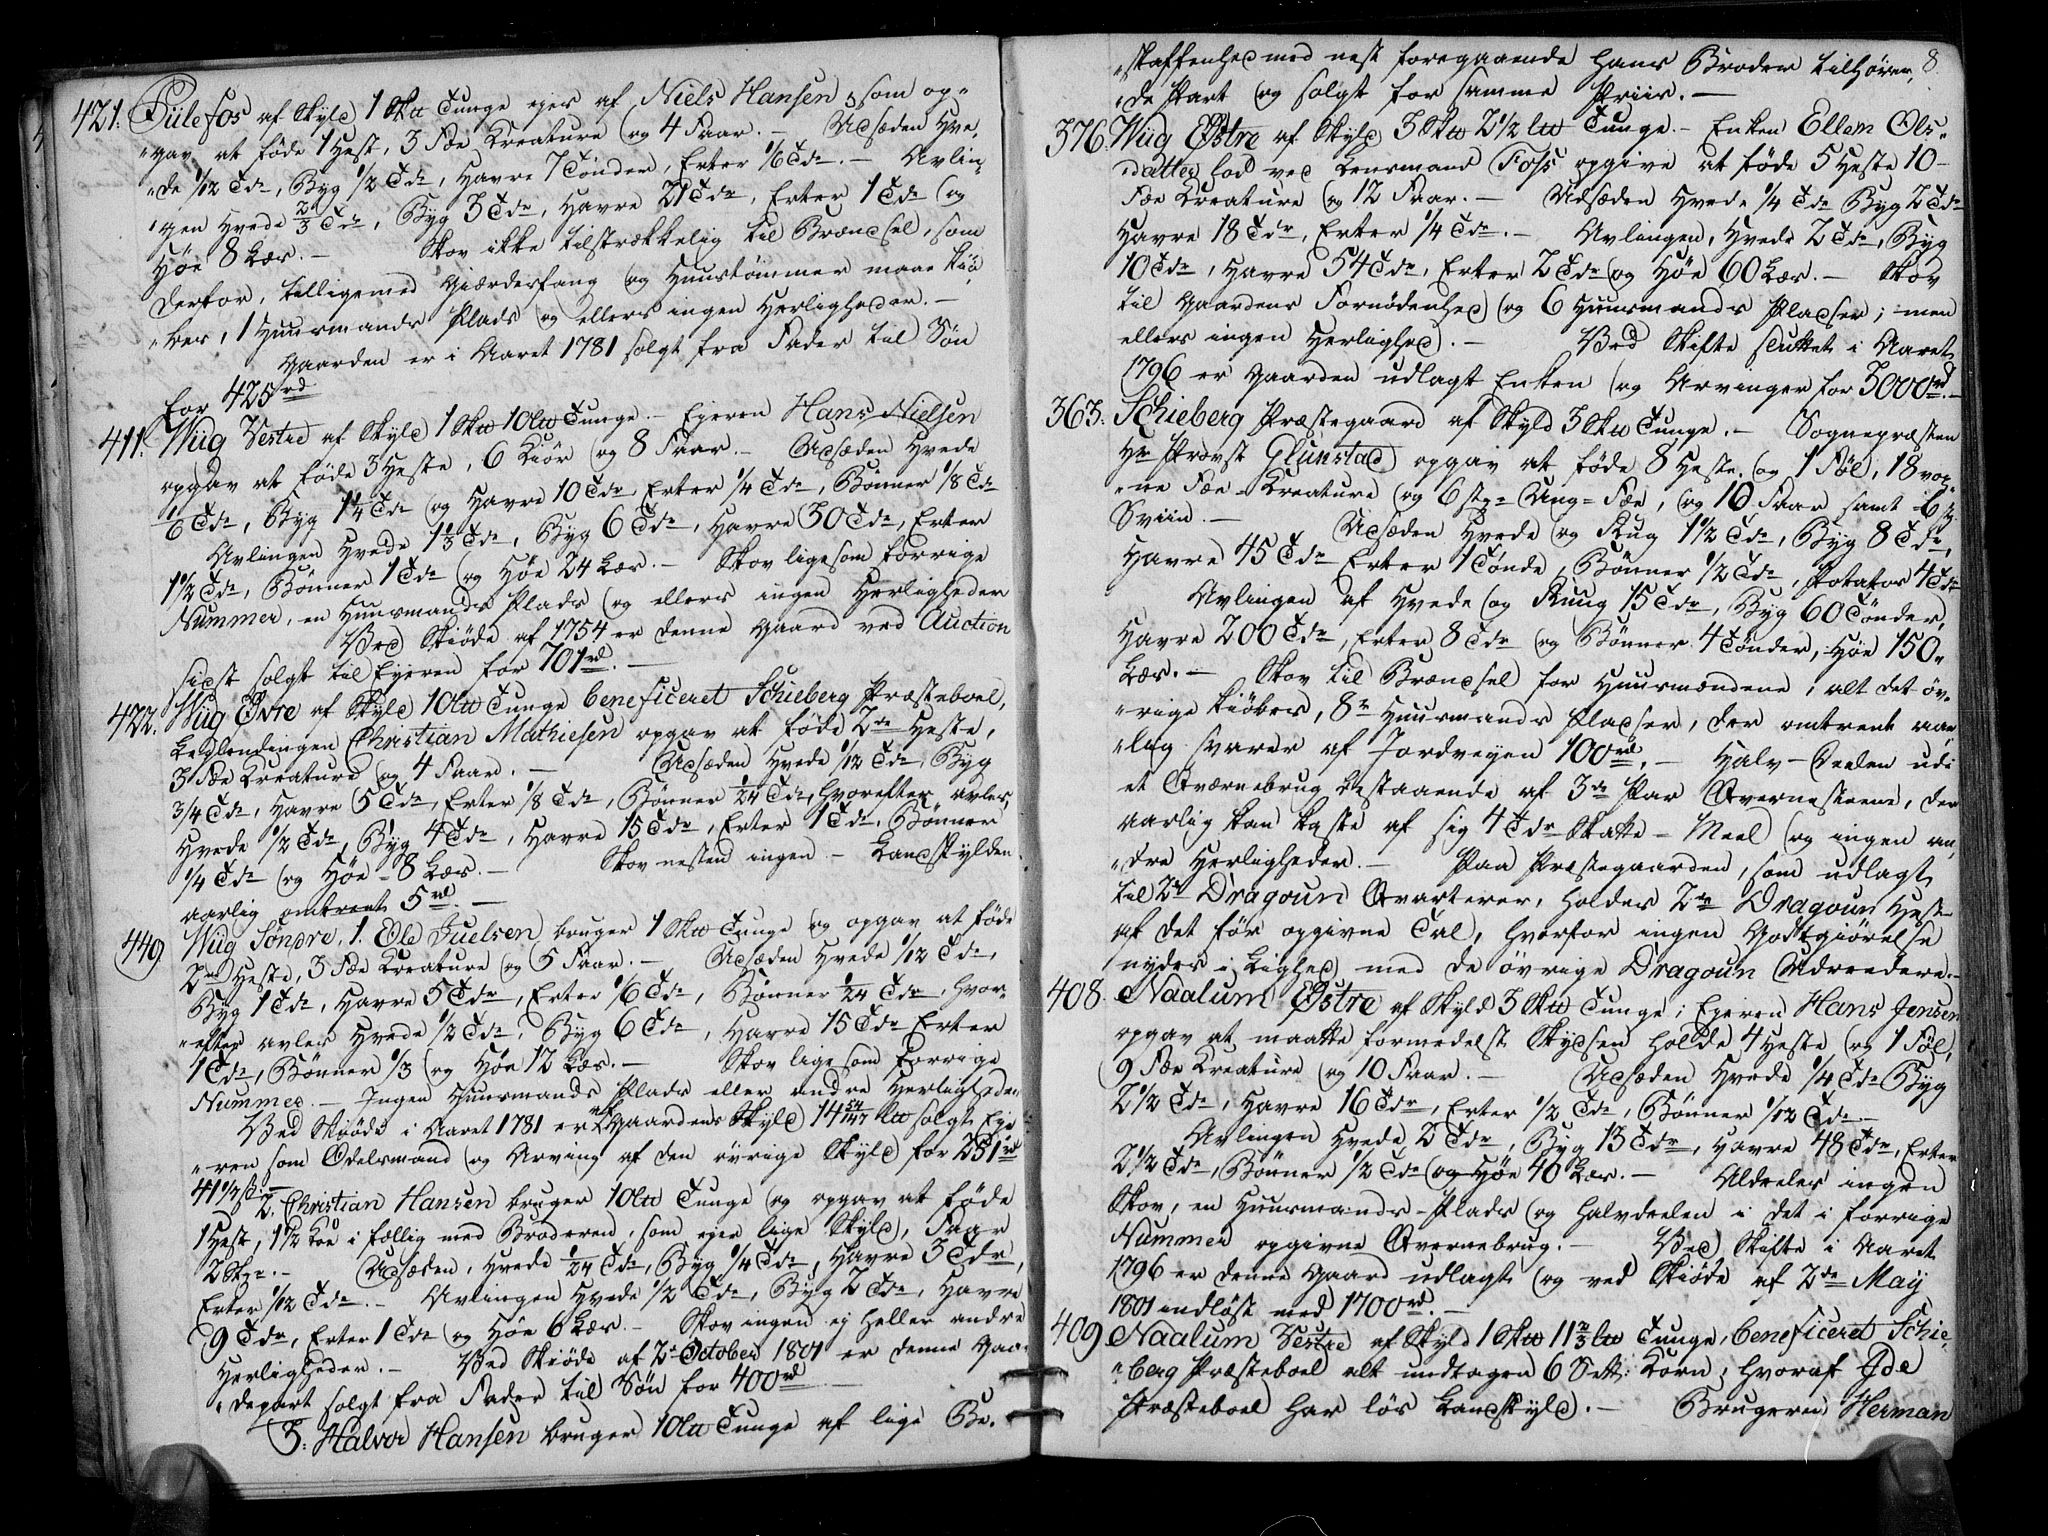 421. Fülefos af Skyld 1 Skw Tunge ejes af Niels Hansen, som op-
"gav at føde 1 Hest, 3 Fæ Kreature og 4 Faar. — Udsæden Hve,
"de 1/12 Tde, Byg 1/2 Tde, Havre 7 Tønder, Erter 1/6 Tde. — Avlin-
"gen Hvede 2/3 Tde, Byg 3 Tdr, Havre 21 Tdr, Erter 1 Tde og
Høe 8 Læs. — Skov ikke tilstrækkelig til Brændsel, som
derfor, tilligemed Gjærdesfang og Huustømmer maae kiø-
"bes, 1 Huusmands Plads og ellers ingen Herligheder. —
Gaarden er i Aaret 1781 solgt fra Fader til Søn
for 425 rd
411. Wiig Vestre af Skyld 1 Skw 10 lw Tunge. — Ejeren Hans Nielsen
opgav at føde 3 Heste, 6 Kiör og 8 Faar. — Udsæden Hvede
1/6 Tde, Byg 1 1/4 Tde og Havre 10 Tdr, Erter 1/4 Tde, Bønner 1/8 Tde
Avlingen Hvede 1 1/3 Tde, Byg 6 Tdr, Havre 30 Tdr, Erter
1 1/2 Tde, Bønner 1 Tde og Høe 24 Læs. — Skov ligesom forrige
Nummer, en Huusmands Plads og ellers ingen Herligheder
Ved Skiøde af 1754 er denne Gaard ved Auction
sidst solgt til Ejeren for 701 rd. —
422. Wiig Øvre af Skyld 10 lw Tunge beneficeret Schieberg Præsteboel,
Leylendingen Christian Mathiesen opgav at føde 2de Heste,
3 Fæ Kreature og 4 Faar. — Udsæden Hvede 1/12 Tde, Byg
3/4 Tde, Havre 5 Tdr, Erter 1/8 Tde, Bønner 1/24 Tde, hvorefter avles
Hvede 1/2 Tde, Byg 4 Tdr, Havre 15 Tdr, Erter 1 Tde, Bønner
1/4 Tde og Høe 8 Læs. — Skov nesten ingen — Landskylden
aarlig omtrent 5 rd. —
449 Wiig Søndre, 1. Ole Juelsen bruger 1 Skw Tunge og opgav at føde
2de Heste, 3 Fæ Kreature og 5 Faar. — Udsæden Hvede 1/12 Tde,
Byg 1 Tde, Havre 5 Tdr, Erter 1/6 Tde, Bønner 1/24 Tde, hvor-
"efter avles Hvede 1/2 Tde, Byg 6 Tdr, Havre 15 Tdr Erter
1 Tde, Bønner 1/3 og Høe 12 Læs. — Skov ligesom forrige
Nummer. — Ingen Huusmands Plads eller andre Herligheder
Ved Skiøde i Aaret 1781 er af Gaardens Skyld 14 lw solgt Eje
"ren som Odelsmand og Arving af den øvrige Skyld for 251 rd
41 1/2 s —
2. Christian Hansen bruger 10 lw Tunge og opgav at føde
1 Hest, 1 1/2 Koe i fællig med Broderen, som ejer lige Skyld, Faar
2 Stkr. — Udsæden, Hvede 1/24 Tde, Byg 1/4 Tde, Havre 3 Tdr,
Erter 1/12 Tde. — Avlingen Hvede 1/2 Tde, Byg 2 Tdr, Havre
9 Tdr, Erter 1 Tde og Høe 6 Læs. — Skov ingen ej heller andre
Herligheder. — Ved Skiøde af 2de October 1801 er denne Gaa-
"depart solgt fra Fader til Søn for 400 rd —
3. Halvor Hansen bruger 10 lw Tunge af lige Be-
8.
"skaffenhed med nest foregaaende hans Broder tilhøren-
"de Part og solgt for samme Priis. —
376. Wiig Østre af Skyld 3 Skw 2 1/2 lw Tunge. — Enken Ellen Ols-
"datter lod ved Lensmand Foss opgive at føde 5 Heste 10
Fæ Kreature og 12 Faar. — Udsæden Hvede 1/4 Tde Byg 2 Tdr
Havre 18 Tdr, Erter 1/4 Tde. — Avlingen, Hvede 2 Tdr, Byg
10 Tdr, Havre 54 Tdr, Erter 2 Tdr og Høe 60 Læs. — Skov
til Gaardens Fornødenhed og 6 Huusmands Pladser; men
ellers ingen Herlighed. — Ved Skifte sluttet i Aaret
1796 er Gaarden udlagt Enken og Arvinger for 3000 rd. —
363. Schieberg Præstegaard af Skyld 3 Skw Tunge. — Sognepræsten
Hr Provst Glünstad opgav at føde 8 Heste og 1 Føl, 18 vox-
"ne Fæ-Kreature og 6 stkr Ung-Fæ, og 10 Faar samt 6
Sviin. — Udsæden Hvede og Rug 1 1/2 Tde, Byg 8 Tdr,
Havre 45 Tdr Erter 1 Tønde, Bønner 1/2 Tde, Potatos 4 Tdr
Avlingen af Hvede og Ruug 15 Tdr, Byg 60 Tønder,
Havre 200 Tdr, Erter 8 Tdr og Bønner 4 Tønder, Høe 150
Læs. — Skov til Brændsel for Huusmændene; alt det øv-
"rige kiøbes, 8te Huusmands Pladser, der omtrent aar
"lig svarer af Jordveyen 100 rd. — Halv-Deelen udi
et Qværnebrug bestaaende af 3de Par Qvernesteene, der
aarlig kan kaste af sig 4 Tdr Skatte-Meel og ingen an-
"dre Herligheder. — Paa Præstegaarden, som udlagt
til 2de Dragoun Qvarterer, holdes 2de Dragoun Heste
af det før opgivne Tal, hvorfor ingen Godtgiørelse
nydes i Lighed med de øvrige Dragoun Udreedere. —
408. Naalum Østre af Skyld 3 Skw Tunge; Ejeren Hans Jensen
opgav at maatte formedelst Skydsen holde 4 Heste og 1 Føl,
9 Fæ Kreature og 10 Faar. — Udsæden Hvede 1/4 Tde Byg
2 1/2 Tde, Havre 16 Tdr, Erter 1/2 Tde, Bønner 1/12 Tde. —
Avlingen Hvede 2 Tdr, Byg 13 Tdr, Havre 48 Tdr, Erter
2 1/2 Tde, Bønner 1/2 Tde og Høe 40 Læs. — Aldeeles ingen
Skov, en Huusmands-Plads og halvdeelen i det i forrige
Nummer opgivne Qvernebrug. — Ved Skifte i Aaret
1796 er denne Gaard udlagt og ved Skiøde af 2de May
1801 indløst med 1700 rd. —
409 Naalum Vestre af Skyld 1 Skw 11 2/3 lw Tunge, beneficeret Schie-
"berg Præsteboel alt undtagen 6 Sett: Korn, hvoraf Ide
Præsteboel har løs Landskyld. — Brugeren Herman